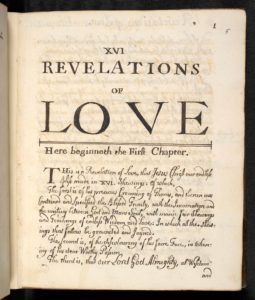 1
5
XVI
REVELATIONS
OF
LOVE
Here beginneth the First Chapter.
THis is a Revelation of Love, that Jesus Christ our endless
bliss made in XVI. Shewings: of which,
The first is of his precious Crowning of Thorns, and therein was
Contained and Specified the Blessed Trinity, with the Incarnation and
the uniting between God and Mans Soul, with many fair Shewings
and Teachings of endless Wisdom and Love: In which all the Shew-
ings that follows be grounded and Joyned.
The second is, of the discolouring of his faire Face, in token-
ing of his deare Worthy Passion.
The third is, that our Lord God Almighty, all Wisdom
and